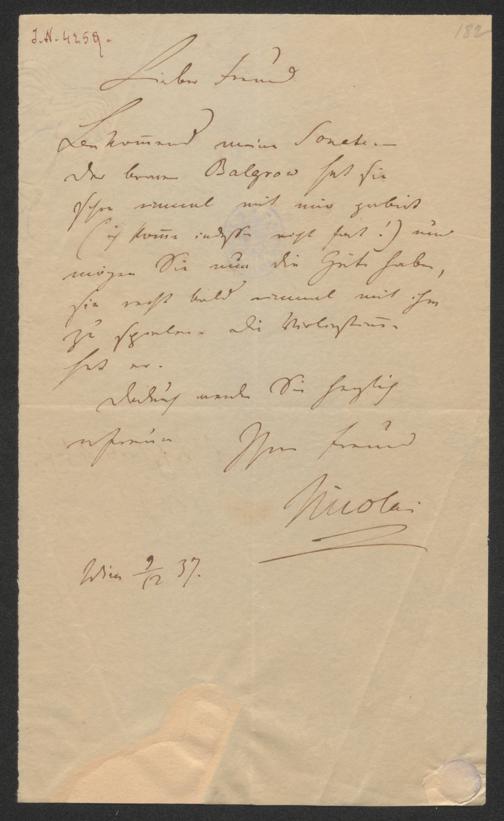 I.N. 4259.
182
Lieber Freund
Beikom̄end meine Sonate.
Der brave Balgrow hat sie
schon einmal mit mir probirt
(ich kom̄e indessen nicht fort!) und
mögen Sie nun die Güte haben,
sie recht bald einmal mit ihm
zu spielen. Die Violinstim̄e
hat er.
Dadurch werden Sie herzlich
erfreuen Ihren Freund
Nicolai
Wien 9/12 37.